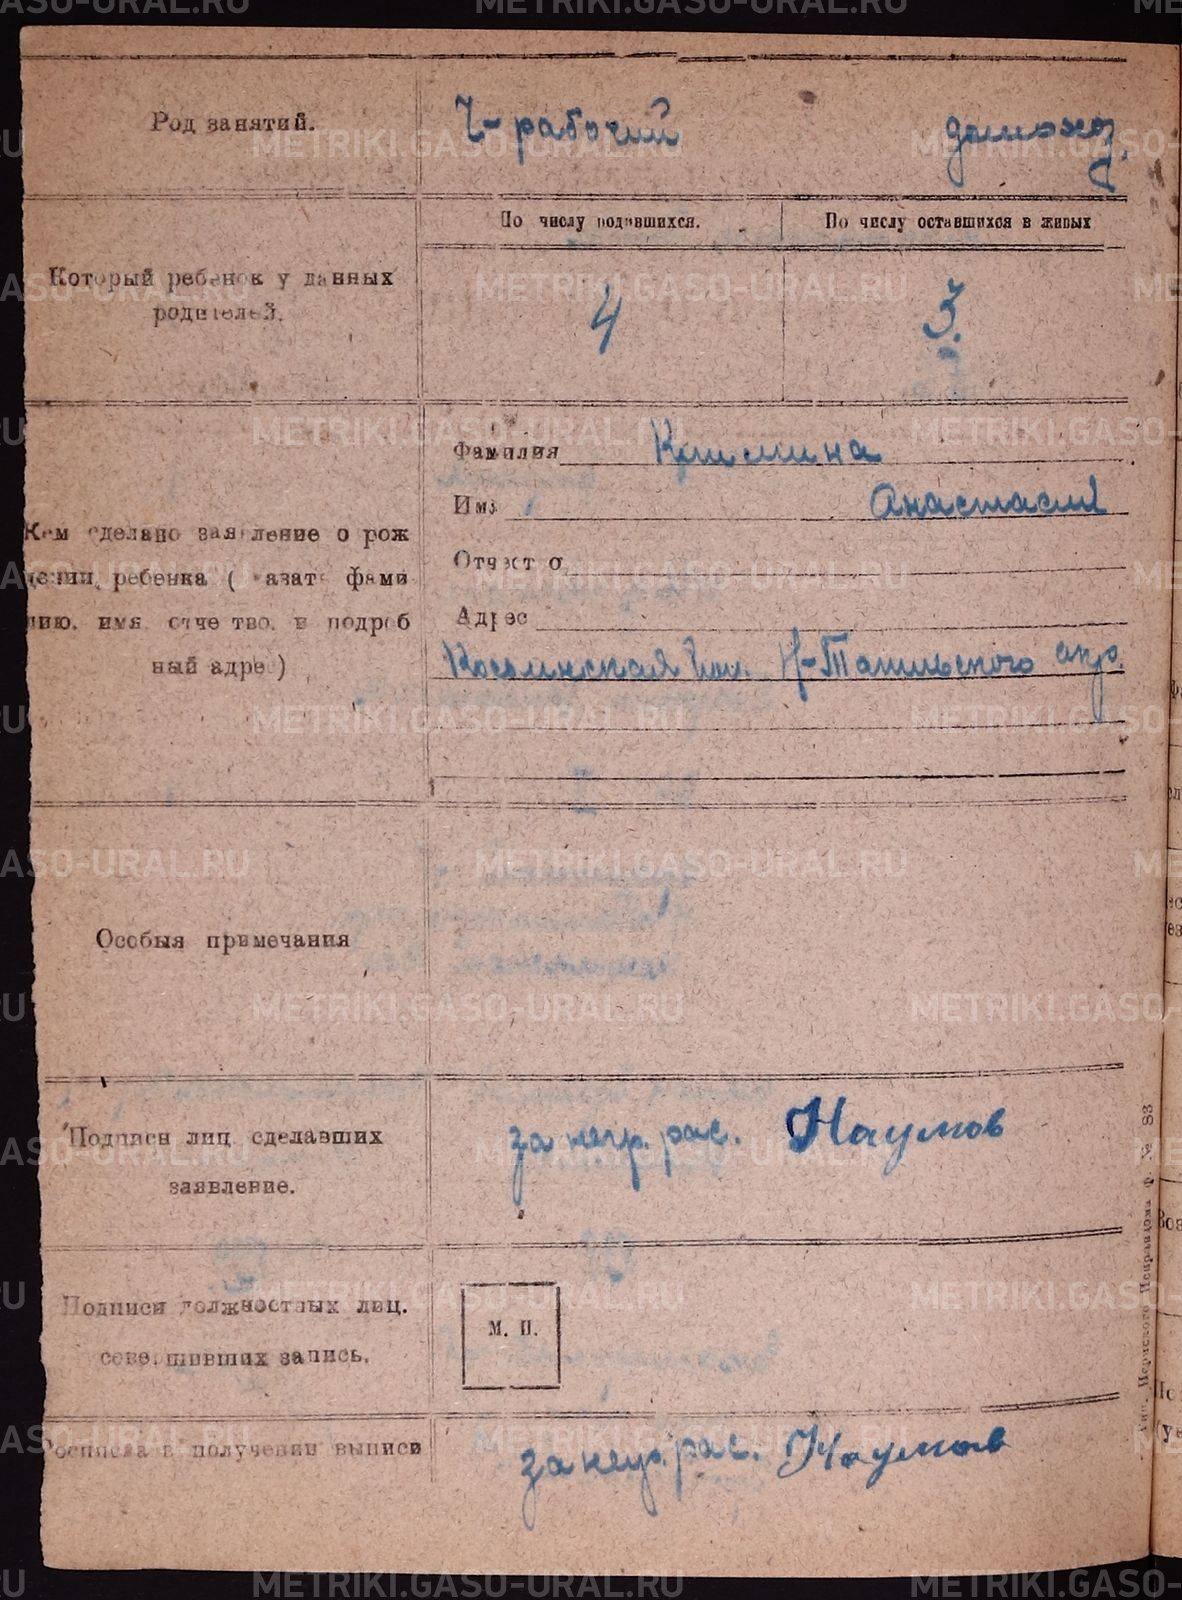 Род занятий.
Ч-рабочий домохоз.
По числу родившихся. По числу оставшихся в живых
Который ребенок у данных
родителей.
4 3.
Фамилия
Имя Анастасия
Отчест о
Адрес
Н-Тагильского окр.
Кем сделано заявление о рож
дении, ребенка ( казат фами
лию, имя, отче тво, и подроб
ный адре )
Особыя примечания
Подписи лиц, сделавших
заявление.
за негр. рас. Наумов
Подписи должностных лиц.
совершивших запись.
М. П.
Росписка в получении выписи
за негр. рас. Наумов
Ф. № 83
METRIKI.GASO-URAL.RU